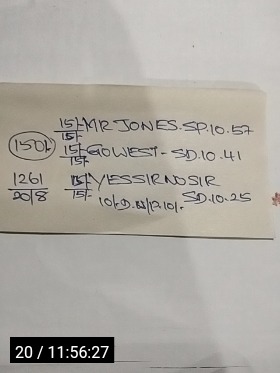 15/- MR JONES. SP.10.57
15/-
150/- 15/- GO WEST - SD.10.41
15/-
1261 15/- YES SIR NO SIR
2018 15/- SD.10.25
10/-D.
20 / 11:56:27